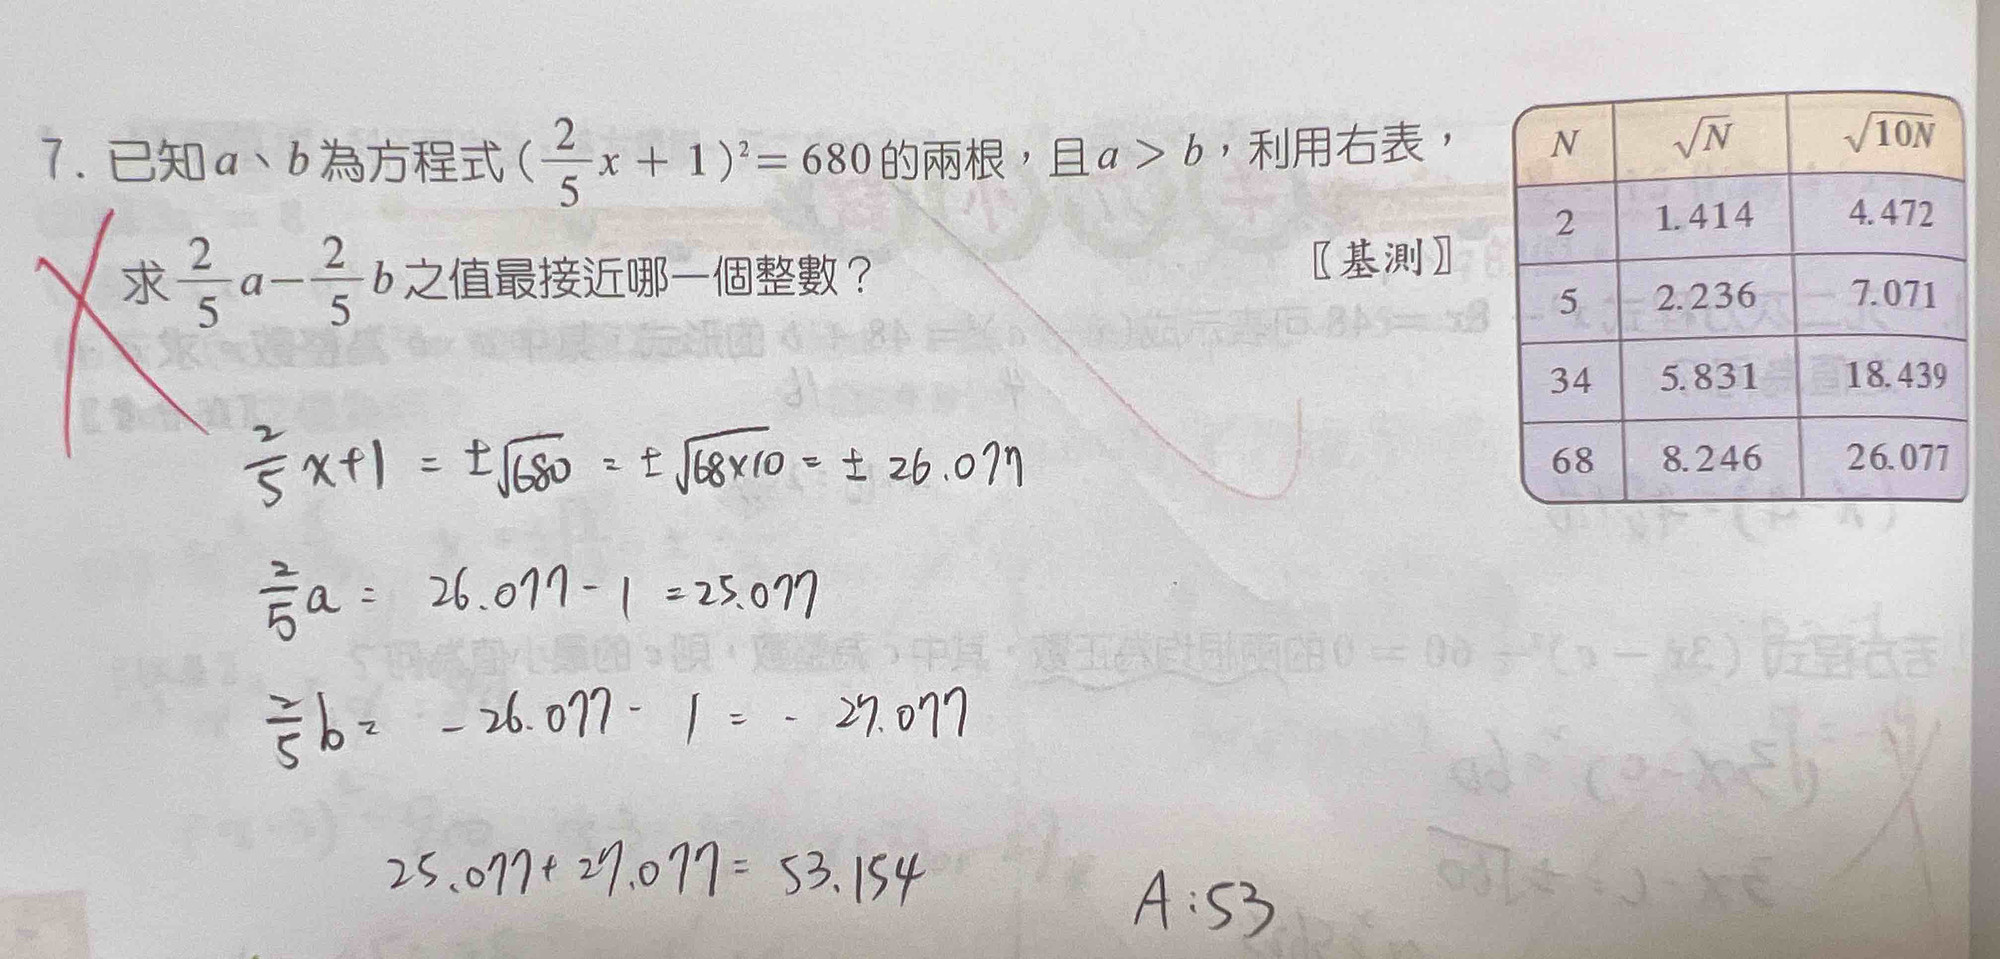 7. 已知a、b為方程式(2/5 x + 1)² = 680的兩根，且a > b，利用右表，
求 2/5 a − 2/5 b 之值最接近哪一個整數？
〖基測〗
N √N √10N
2 1.414 4.472
5 2.236 7.071
34 5.831 18.439
68 8.246 26.077
2/5 x+1 = ±√680 = ±√68×10 = ± 26.077
2/5 a = 26.077 - 1 = 25.077
2/5 b = - 26.077 - 1 = - 27.077
25.077 + 27.077 = 53.154
A:53